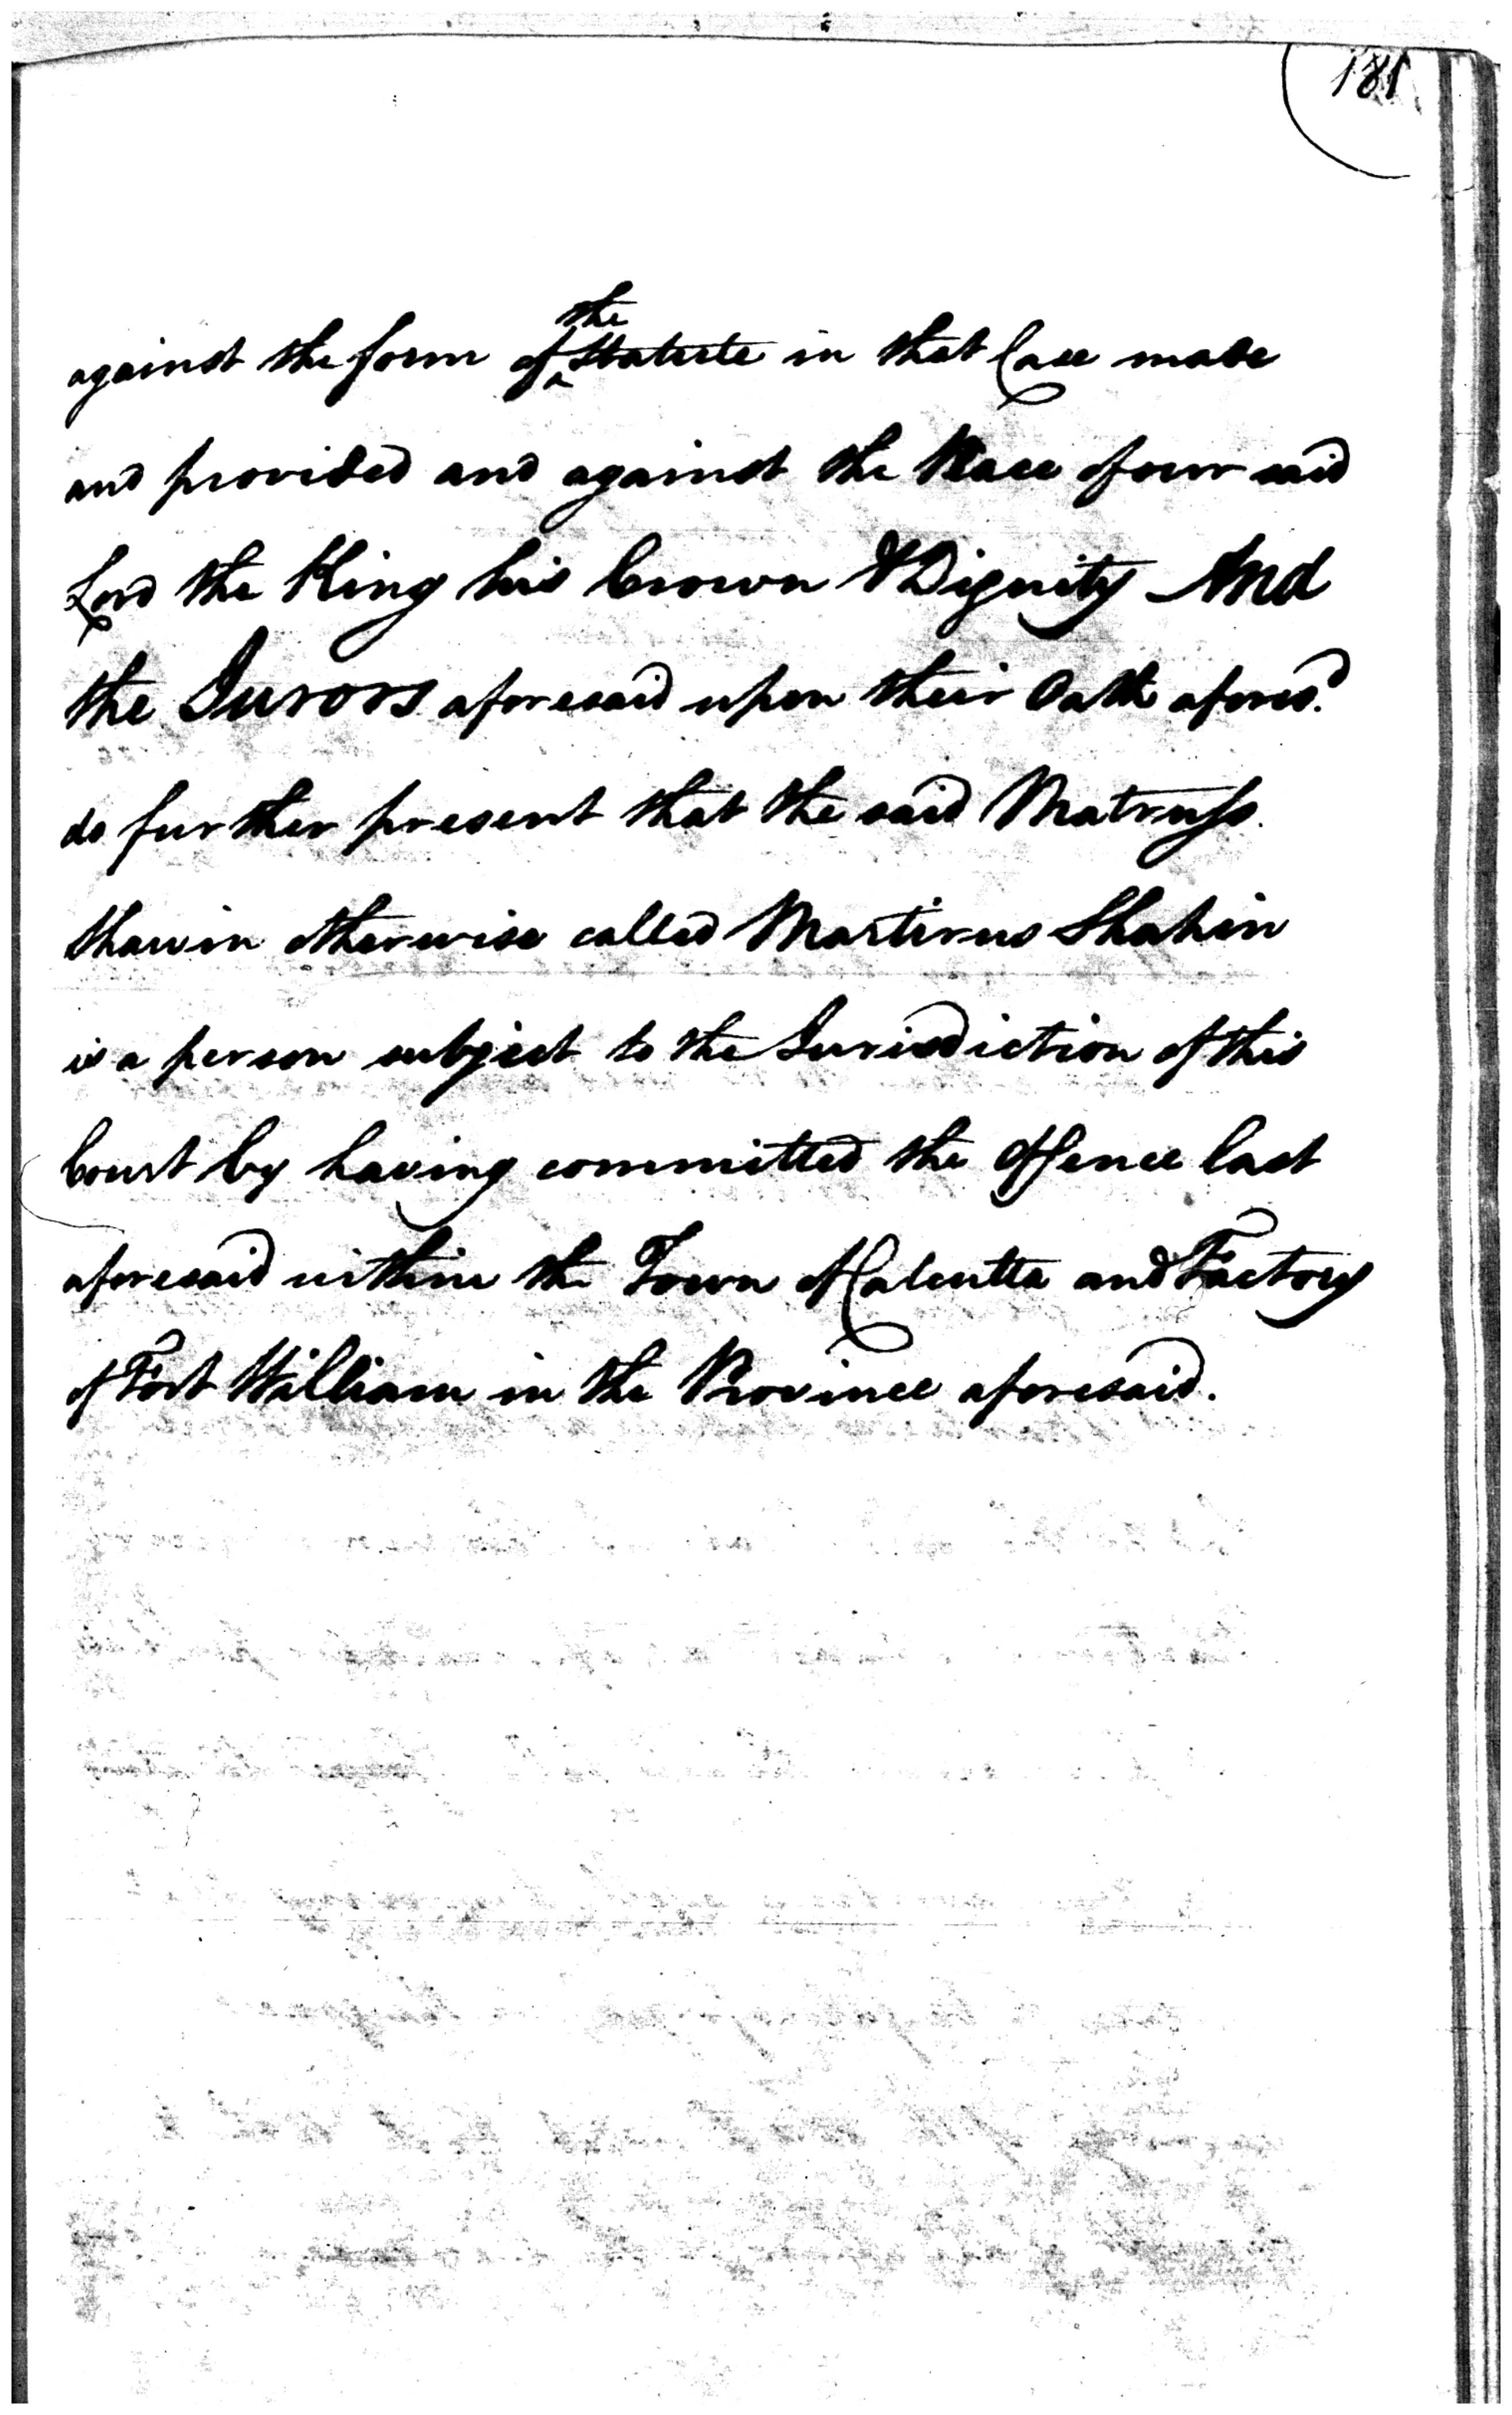 181
against the form of the Statute in that Case made
and provided and against the Peace of our said
Lord the King his Crown & Dignity And
the Jurors aforesaid upon their Oath afores.d
do further present that the said Matruss
Shawin otherwise called Martirus Shahin
is a person subject to the Jurisdiction of this
Court by having committed the Offence last
aforesaid within the Town of Calcutta and Factory
of Fort William in the Province aforesaid.